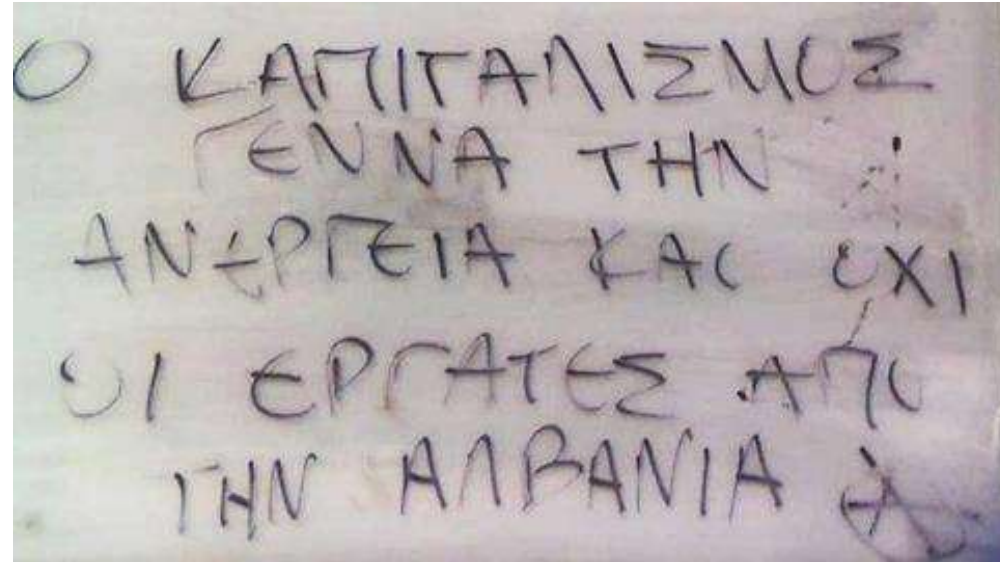 Ο ΚΑΠΙΤΑΛΙΣΜΟΣ
ΓΕΝΝΑ ΤΗΝ
ΑΝΕΡΓΕΙΑ ΚΑΙ ΟΧΙ
ΟΙ ΕΡΓΑΤΕΣ ΑΠΟ
ΤΗΝ ΑΛΒΑΝΙΑ